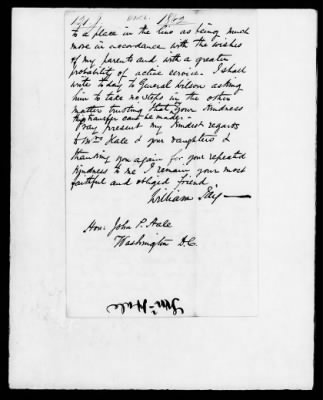 to a place in the line as being much
more in accordance with the wishes
of my parents and with a greater
probability of active service. I shall
write today to General Wilson asking
him to take no steps in the other
matter trusting that your kindness
the transfer can be made.
Pray present my kindest regards
to Mrs Hale & your daughters &
thanking you again for your repeated
kindness to me I remain your most
faithful and obliged friend
William
Hon. John P. Hale
Washington D.C.
Hale